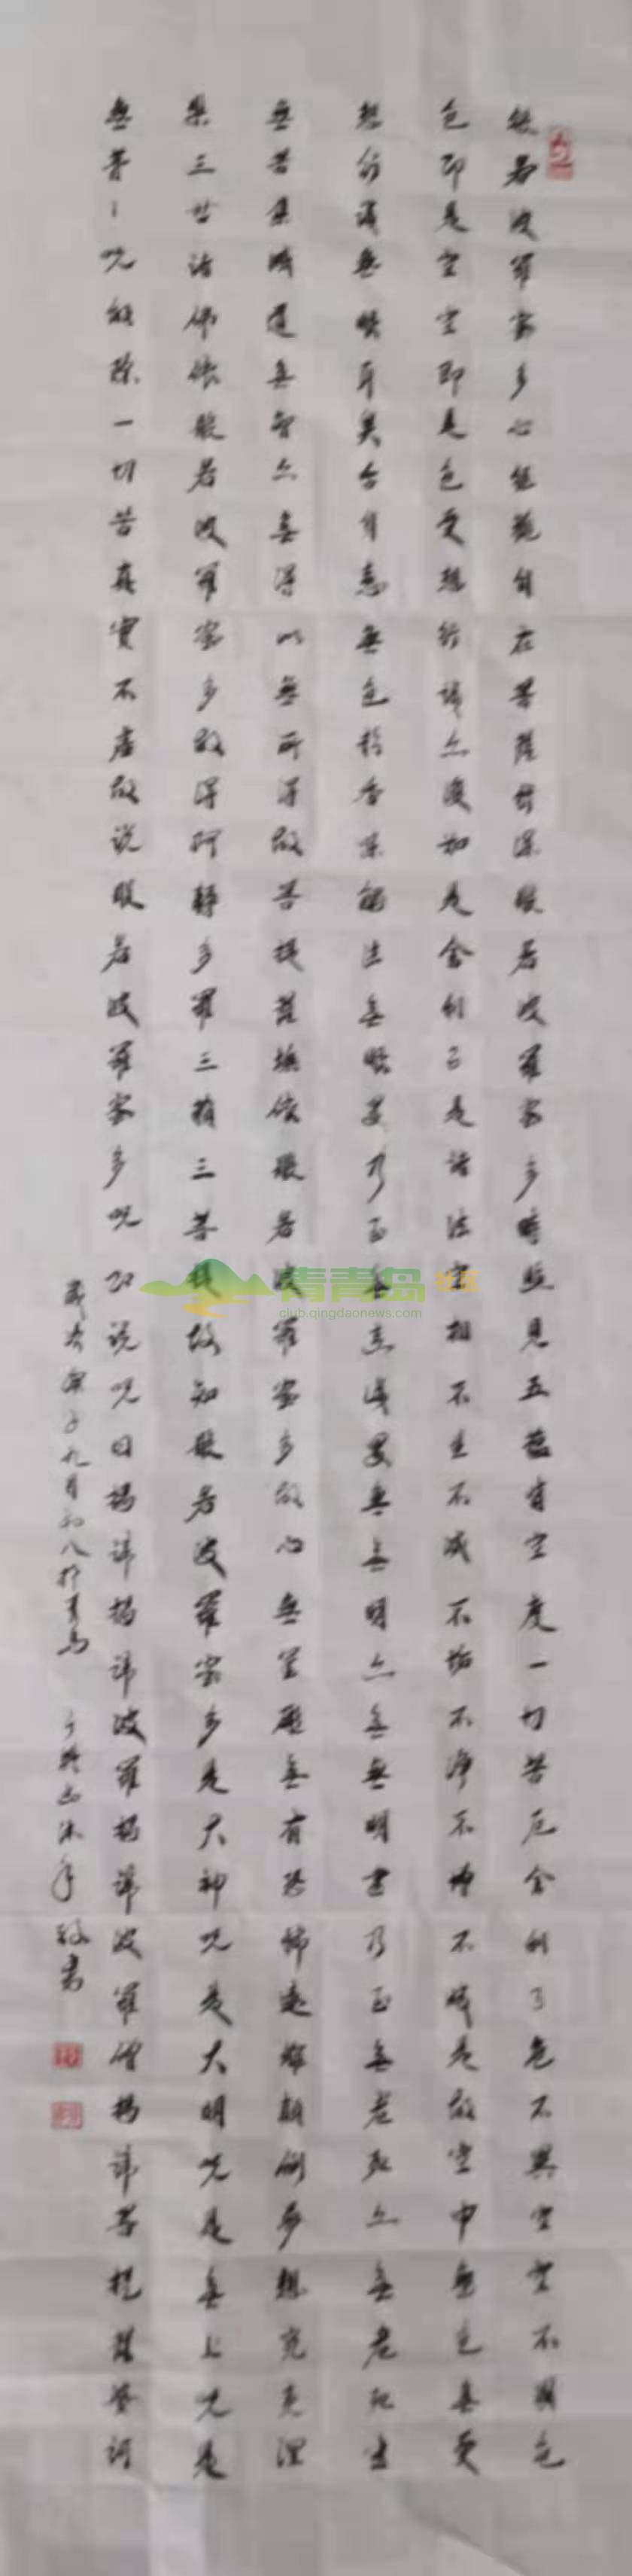 般若波罗蜜多心经观自在菩萨行深般若波罗蜜多时照见五蕴皆空度一切苦厄舍利子色不异空空不异色
色即是空空即是色受想行识亦复如是舍利子是诸法空相不生不灭不垢不净不增不减是故空中无色无受
想行识无眼耳鼻舌身意无色声香味触法无眼界乃至无意识界无无明亦无无明尽乃至无老死亦无老死尽
無苦集滅道無智亦無得以無所得故菩提薩埵依般若波羅蜜多故心無罣礙無有恐怖遠離顛倒夢想究竟涅
槃三世诸佛依般若波罗蜜多故得阿耨多罗三藐三菩提故知般若波罗蜜多是大神咒是大明咒是無上咒是
無等咒能除一切苦真實不虚故说般若波羅蜜多咒即说咒曰揭谛揭谛波羅揭谛波羅僧揭谛菩提薩婆诃
歲在庚子九月初八於青島
青青岛 社区
club.qingdaonews.com